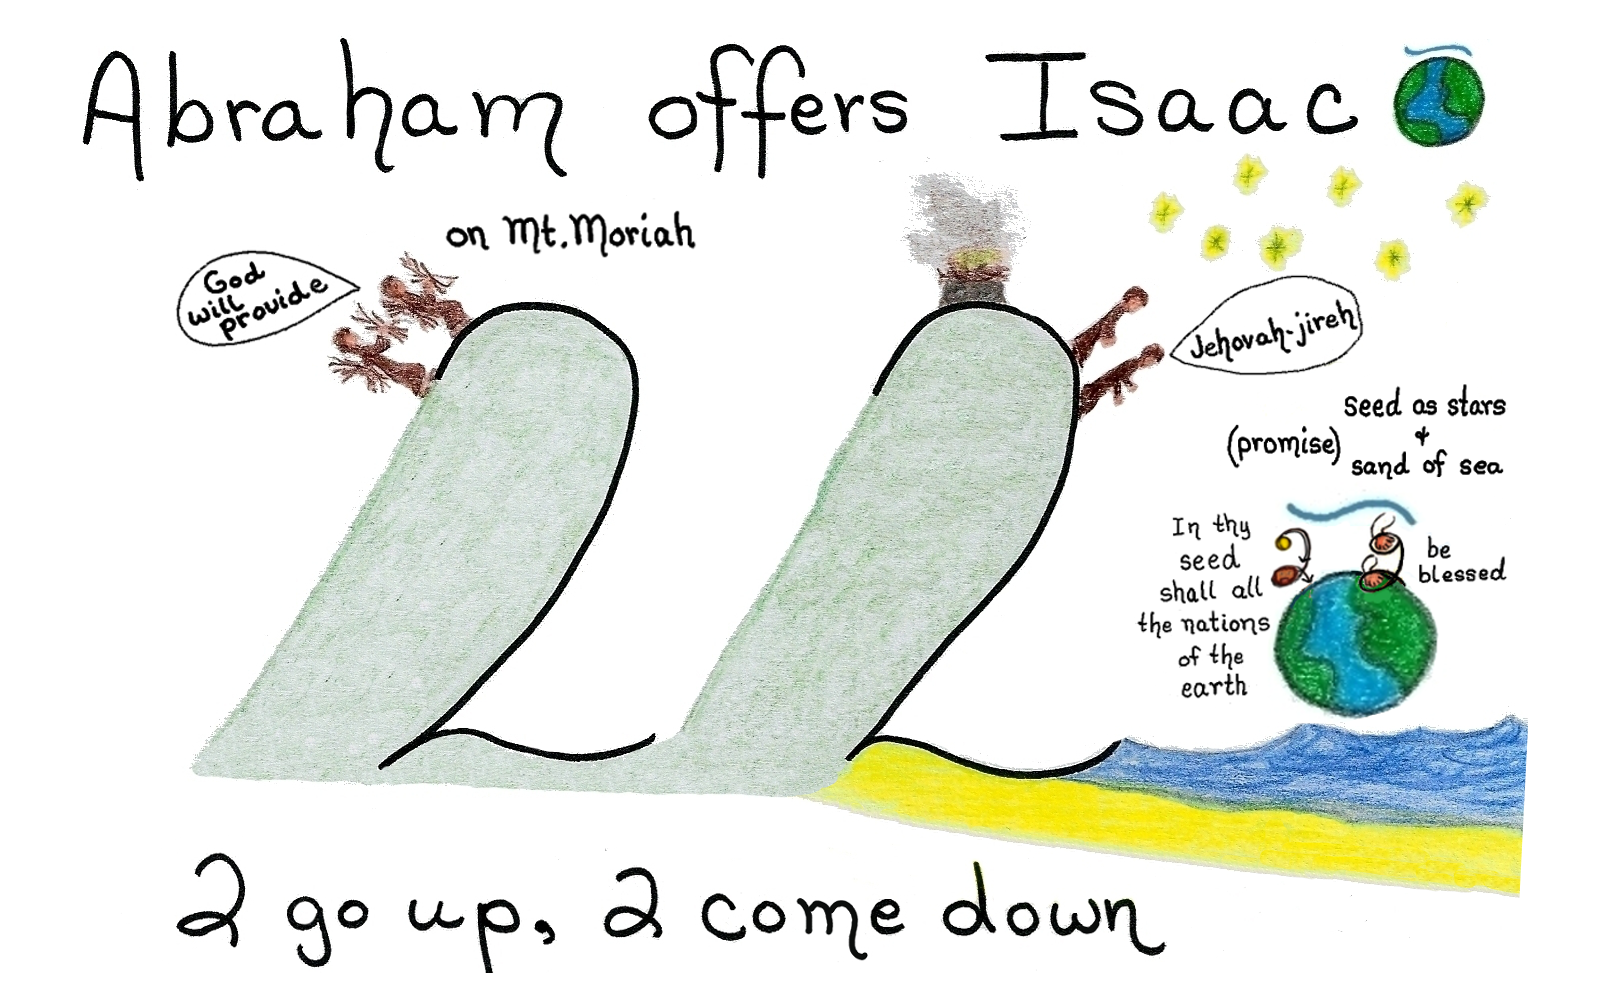 Abraham offers Isaac
on Mt. Moriah
God
will
provide
Jehovah-jireh
seed as stars
(promise)
&
sand of sea
In thy
seed
shall all
the nations
of the
earth
be
blessed
2 go up, 2 come down